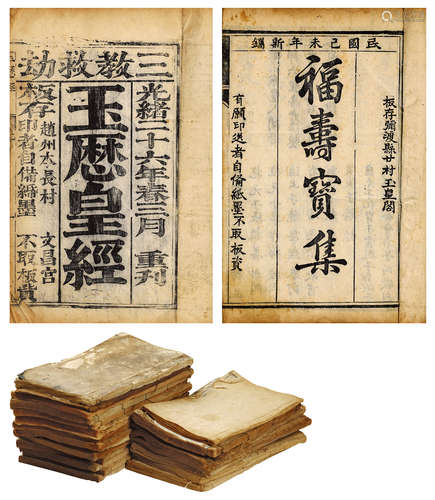 三教救劫
光緒二十六年春三月 重刊
玉歷皇經
板存 趙州太長村 文昌宮
印者自備紙墨 不取板費
民國己未年新鐫
板存彌渡縣廿村玉皇閣
福壽寶集
有願印送者自備紙墨不取板資